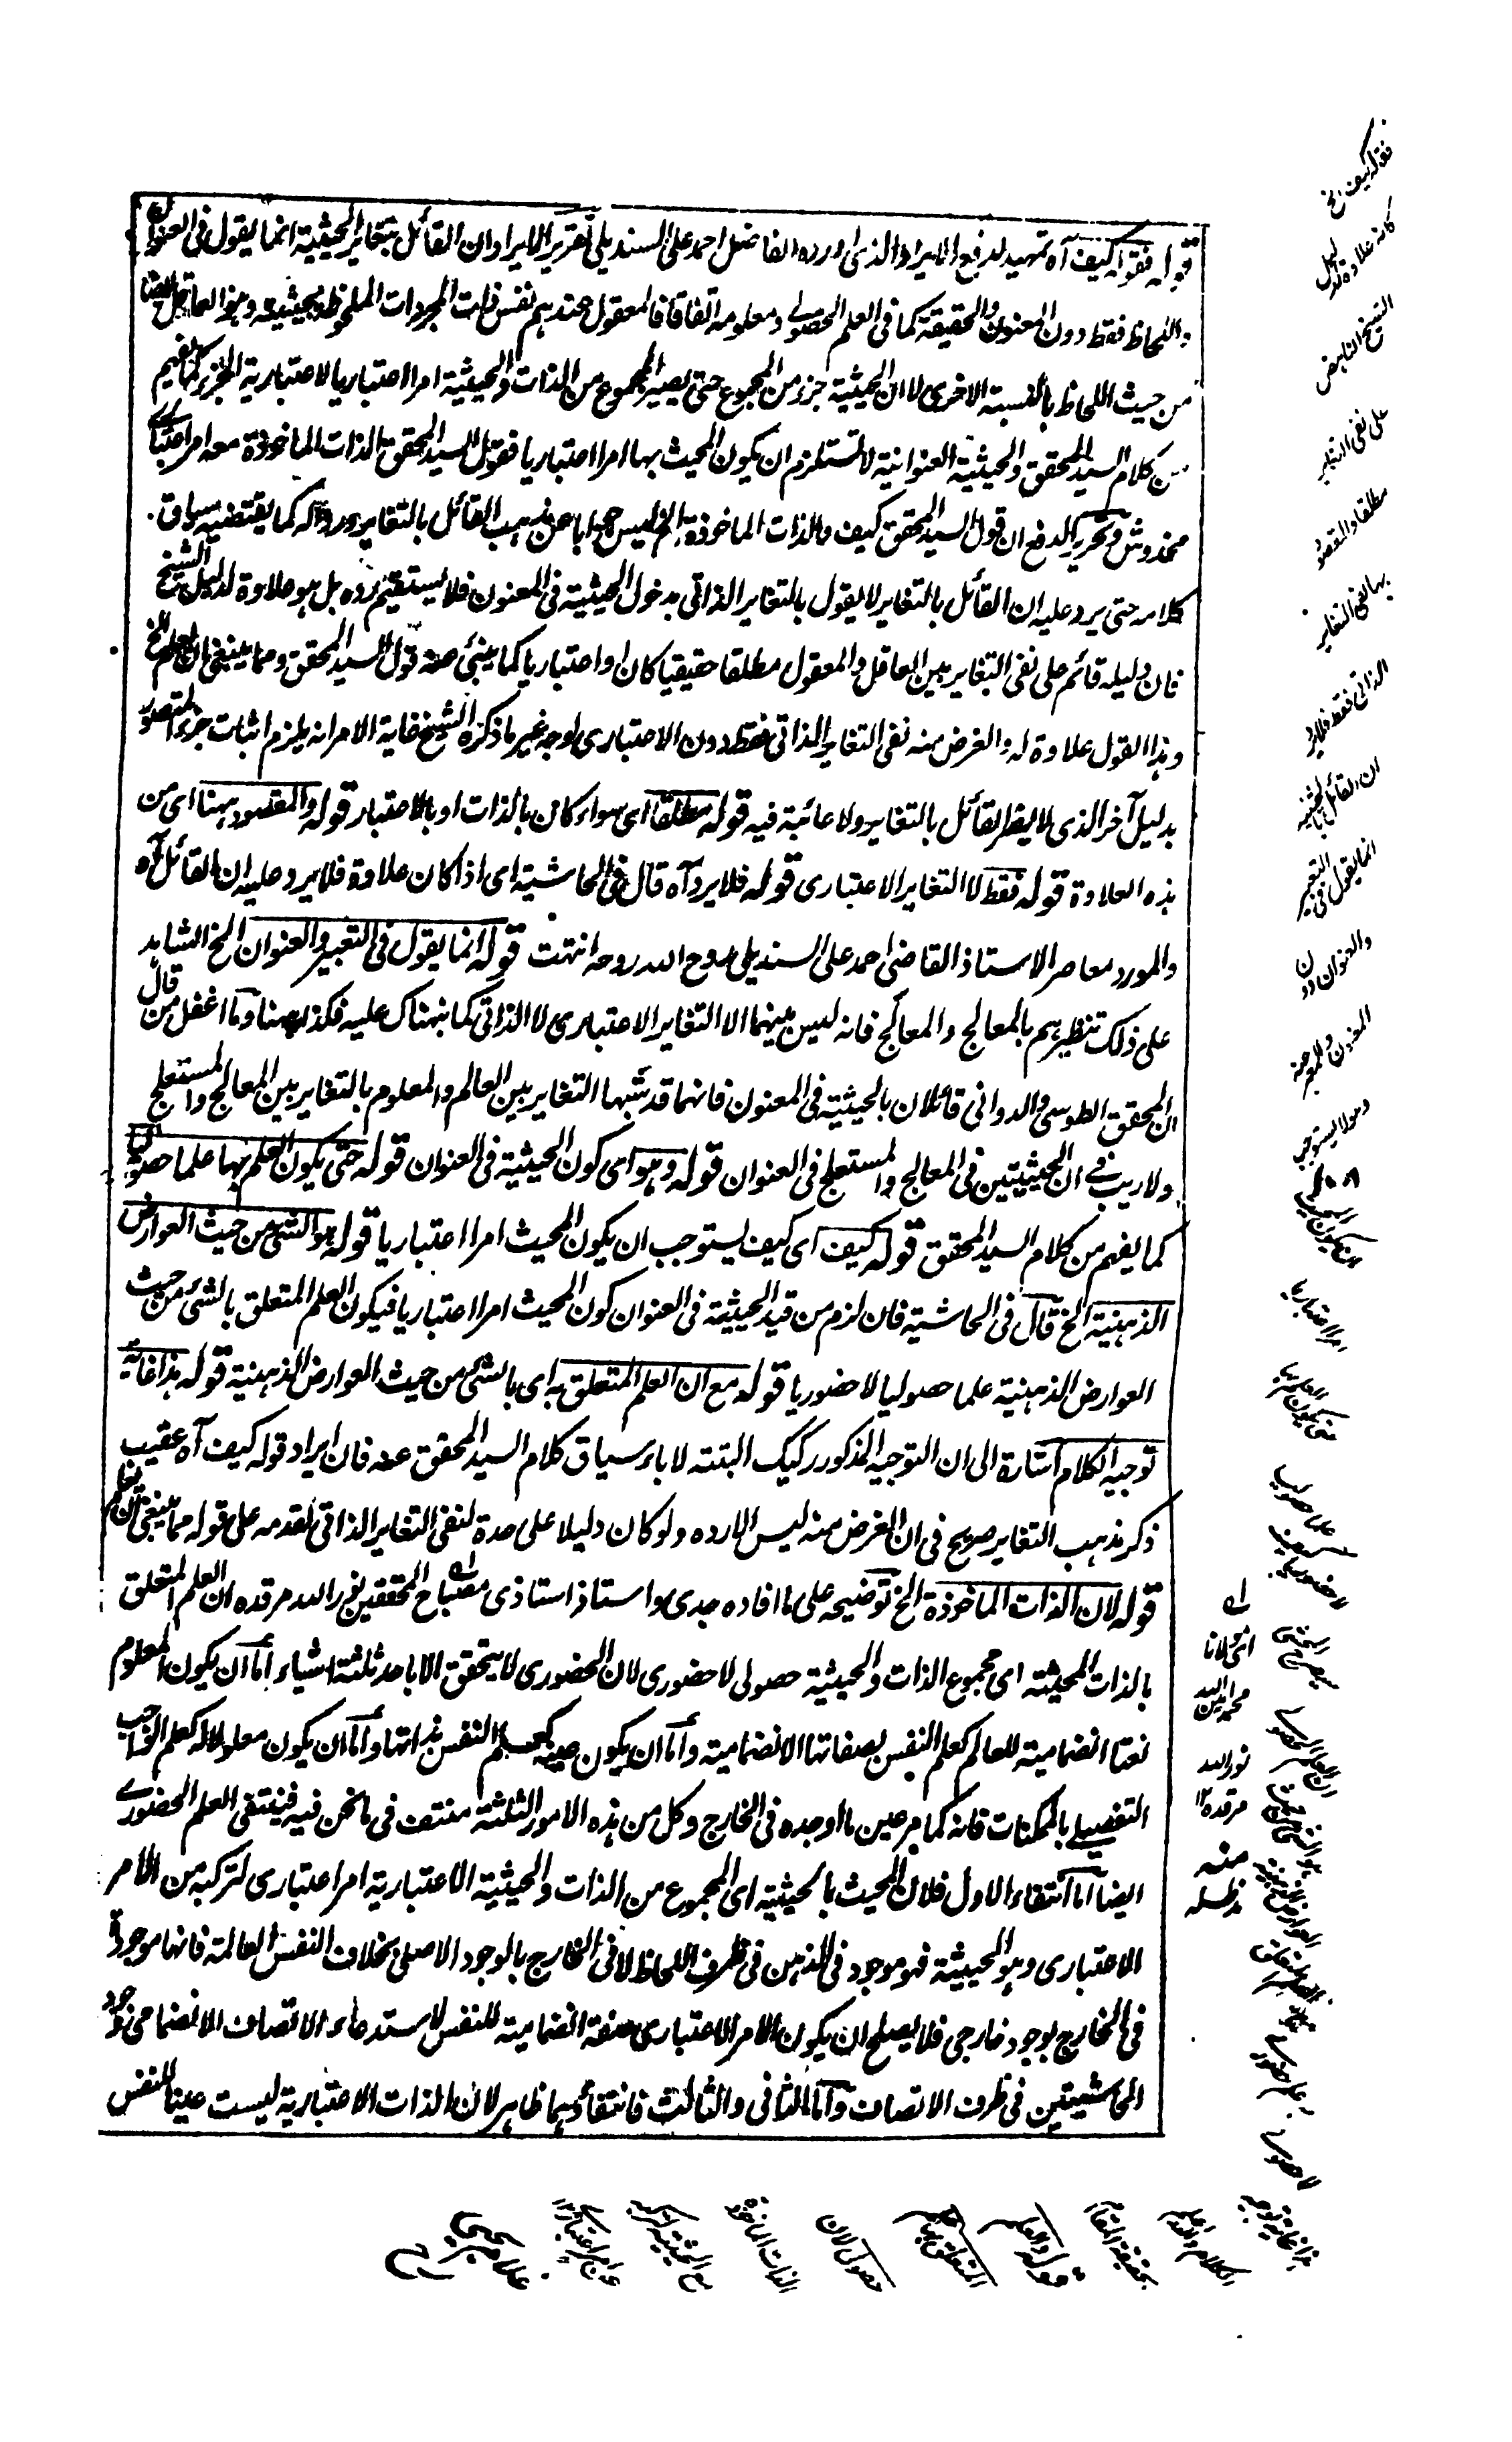 قوله فقوله كيف آه تمهيد لدفع الايراد الذى اورده الفاضل احمد على السنديلى تقرير الايراد ان القائل بتغاير الحيثية انما يقول فى العنوان
واللحاظ فقط دون المعنون والحقيقة كما فى العلم الحصولى ومعلومه اتفاقا فالمعقول عندهم نفس ذات المجردات الملحوظ بحيثية وهو العاقل ايضا
من حيث اللحاظ بالنسبة الاخرى لا ان الحيثية جزء من المجموع حتى يصير المجموع من الذات والحيثية امرا اعتباريا لاعتبارية الجزء كما يفهم
من كلام السيد المحقق والحيثية العنوانية لا تستلزم ان يكون المحيث بها امرا اعتباريا فقول السيد المحقق الذات الماخوذة معه امر اعتبارى
مخدوش وتحرير الدفع ان قول السيد المحقق كيف والذات الماخوذة الخ ليس جوابا عن مذهب القائل بالتغاير ورد اله كما يقتضيه سياق
كلامه حتى يرد عليه ان القائل بالتغاير لا يقول بالتغاير الذاتى بدخول الحيثية فى المعنون فلا يستقيم رده بل هو علاوة لدليل الشيخ
فان دليله قائم على نفى التغاير بين العاقل والمعقول مطلقا حقيقيا كان او اعتباريا كما ينبئ عنه قول السيد المحقق ومما ينبغى ان يعلم الخ
وهذا القول علاوة له والغرض منه نفى التغاير الذاتى فقط دون الاعتبارى لوجه غير ما ذكره الشيخ غاية الامر انه يلزم اثبات جزء المقصود
بدليل آخر الذى لا يضر القائل بالتغاير ولا عائبة فيه قوله مطلقا اى سواء كان بالذات او بالاعتبار قوله والمقصود ههنا اى من
هذه العلاوة قوله فقط لا التغاير الاعتبارى قوله فلا يرد آه قال فى الحاشية اى اذا كان علاوة فلا يرد عليه ان القائل آه
والمورد معاصر الاستاذ القاضى احمد على السنديلى روح الله روحه انتهت قوله انما يقول فى التعبير والعنوان الخ الشاهد
على ذلك تنظيرهم بالمعالج والمعالج فانه ليس بينهما الا التغاير الاعتبارى لا الذاتى كما نبهناك عليه فكذا ههنا وما اغفل من قال
ان المحقق الطوسى والدوانى قائلان بالحيثية فى المعنون فانهما قد شبها التغاير بين العالم والمعلوم بالتغاير بين المعالج والمستعلج
ولا ريب فى ان الحيثيتين فى المعالج والمستعلج فى العنوان قوله وهو اى كون الحيثية فى العنوان قوله حتى يكون العلم بها علما حصوليا
كما يفهم من كلام السيد المحقق قوله كيف اى كيف يستوجب ان يكون المحيث امرا اعتباريا قوله هو الشئ من حيث العوارض
الذهنية الخ قال فى الحاشية فان لزم من قيد الحيثية فى العنوان كون المحيث امرا اعتباريا فيكون العلم المتعلق بالشئ من حيث
العوارض الذهنية علما حصوليا لا حضوريا قوله مع ان العلم المتعلق به اى بالشئ من حيث العوارض الذهنية قوله هذا غاية
توجيه الكلام اشارة الى ان التوجيه المذكور ركيك البتته لاباء سياق كلام السيد المحقق عنه فان ايراد قوله كيف آه عقيب
ذكر مذهب التغاير صريح فى ان الغرض منه ليس الا رده ولو كان دليلا على حدة لنفى التغاير الذاتى لقدمه على قوله مما ينبغى ان يعلم
قوله لان الذات الماخوذة الخ توضيحه على ما افاده جدى واستاذ استاذى مصباح المحققين نور الله مرقده ان العلم المتعلق
بالذات المحيثة اى مجموع الذات والحيثية حصولى لا حضورى لان الحضورى لا يتحقق الا باحد ثلثة اشياء اما ان يكون المعلوم
نعتا انضمامية للعالم كعلم النفس بصفاتها الانضمامية واما ان يكون عينه كعلم النفس بذاتها واما ان يكون معلولا له كعلم الواجب
التفصيلى بالممكنات فانه كما مر عين ما اوجده فى الخارج وكل من هذه الامور الثلثة منتف فى ما نحن فيه فينتفى العلم الحضورى
ايضا اما انتفاء الاول فلان المحيث بالحيثية اى المجموع من الذات والحيثية الاعتبارية امر اعتبارى لتركبه من الامر
الاعتبارى وهو الحيثية فهو موجود فى الذهن فى ظرف اللحاظ لا فى الخارج بالوجود الاصلى بخلاف النفس العالمة فانها موجودة
فى الخارج بوجود خارجى فلا يصلح ان يكون الامر الاعتبارى صفة انضمامية للنفس لاستدعاء الاتصاف الانضمامى وجود
الحاشيتين فى ظرف الاتصاف واما الثانى والثالث فانتفاؤهما ظاهر لان الذات الاعتبارية ليست عينا للنفس
فقوله كيف الخ
كانه علاوة لدليل
الشيخ الناهض
على نفى التغاير
مطلقا والمقصود
بها نفى التغاير
الذاتى فقط فلا يرد
ان القائل بالحيثية
انما يقول فى التعبير
والعنوان دون
المعنون والمعبر عنه
وهو لا يستوجب
ان يكون المحيث
امرا اعتباريا
حتى يكون العلم بها
علما حصوليا
ان العلم الحصولى
هو الشئ من حيث
العوارض الذهنية
علم حضورى
لا حصولى
هذا غاية توجيه
الكلام
حصولى لان
الذات الماخوذة
مع الحيثية
امر اعتبارى
له
اى مولانا
محمد مبين
نور الله
مرقده ١٢
منه
مد ظله